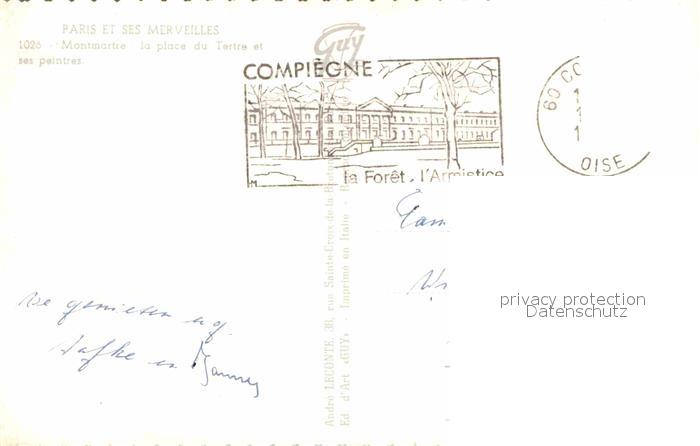 PARIS ET SES MERVEILLES
1026 - Montmartre la place du Tertre et
ses peintres.
Guy
COMPIÈGNE
la Forêt, l'Armistice
60 CO
OISE
Fam
we genieten nog
en
André LECONTE, 38, rue Sainte-Croix-de-la-Bretonnerie
Ed. d'Art «GUY» - Imprimé en Italie -
privacy protection
Datenschutz